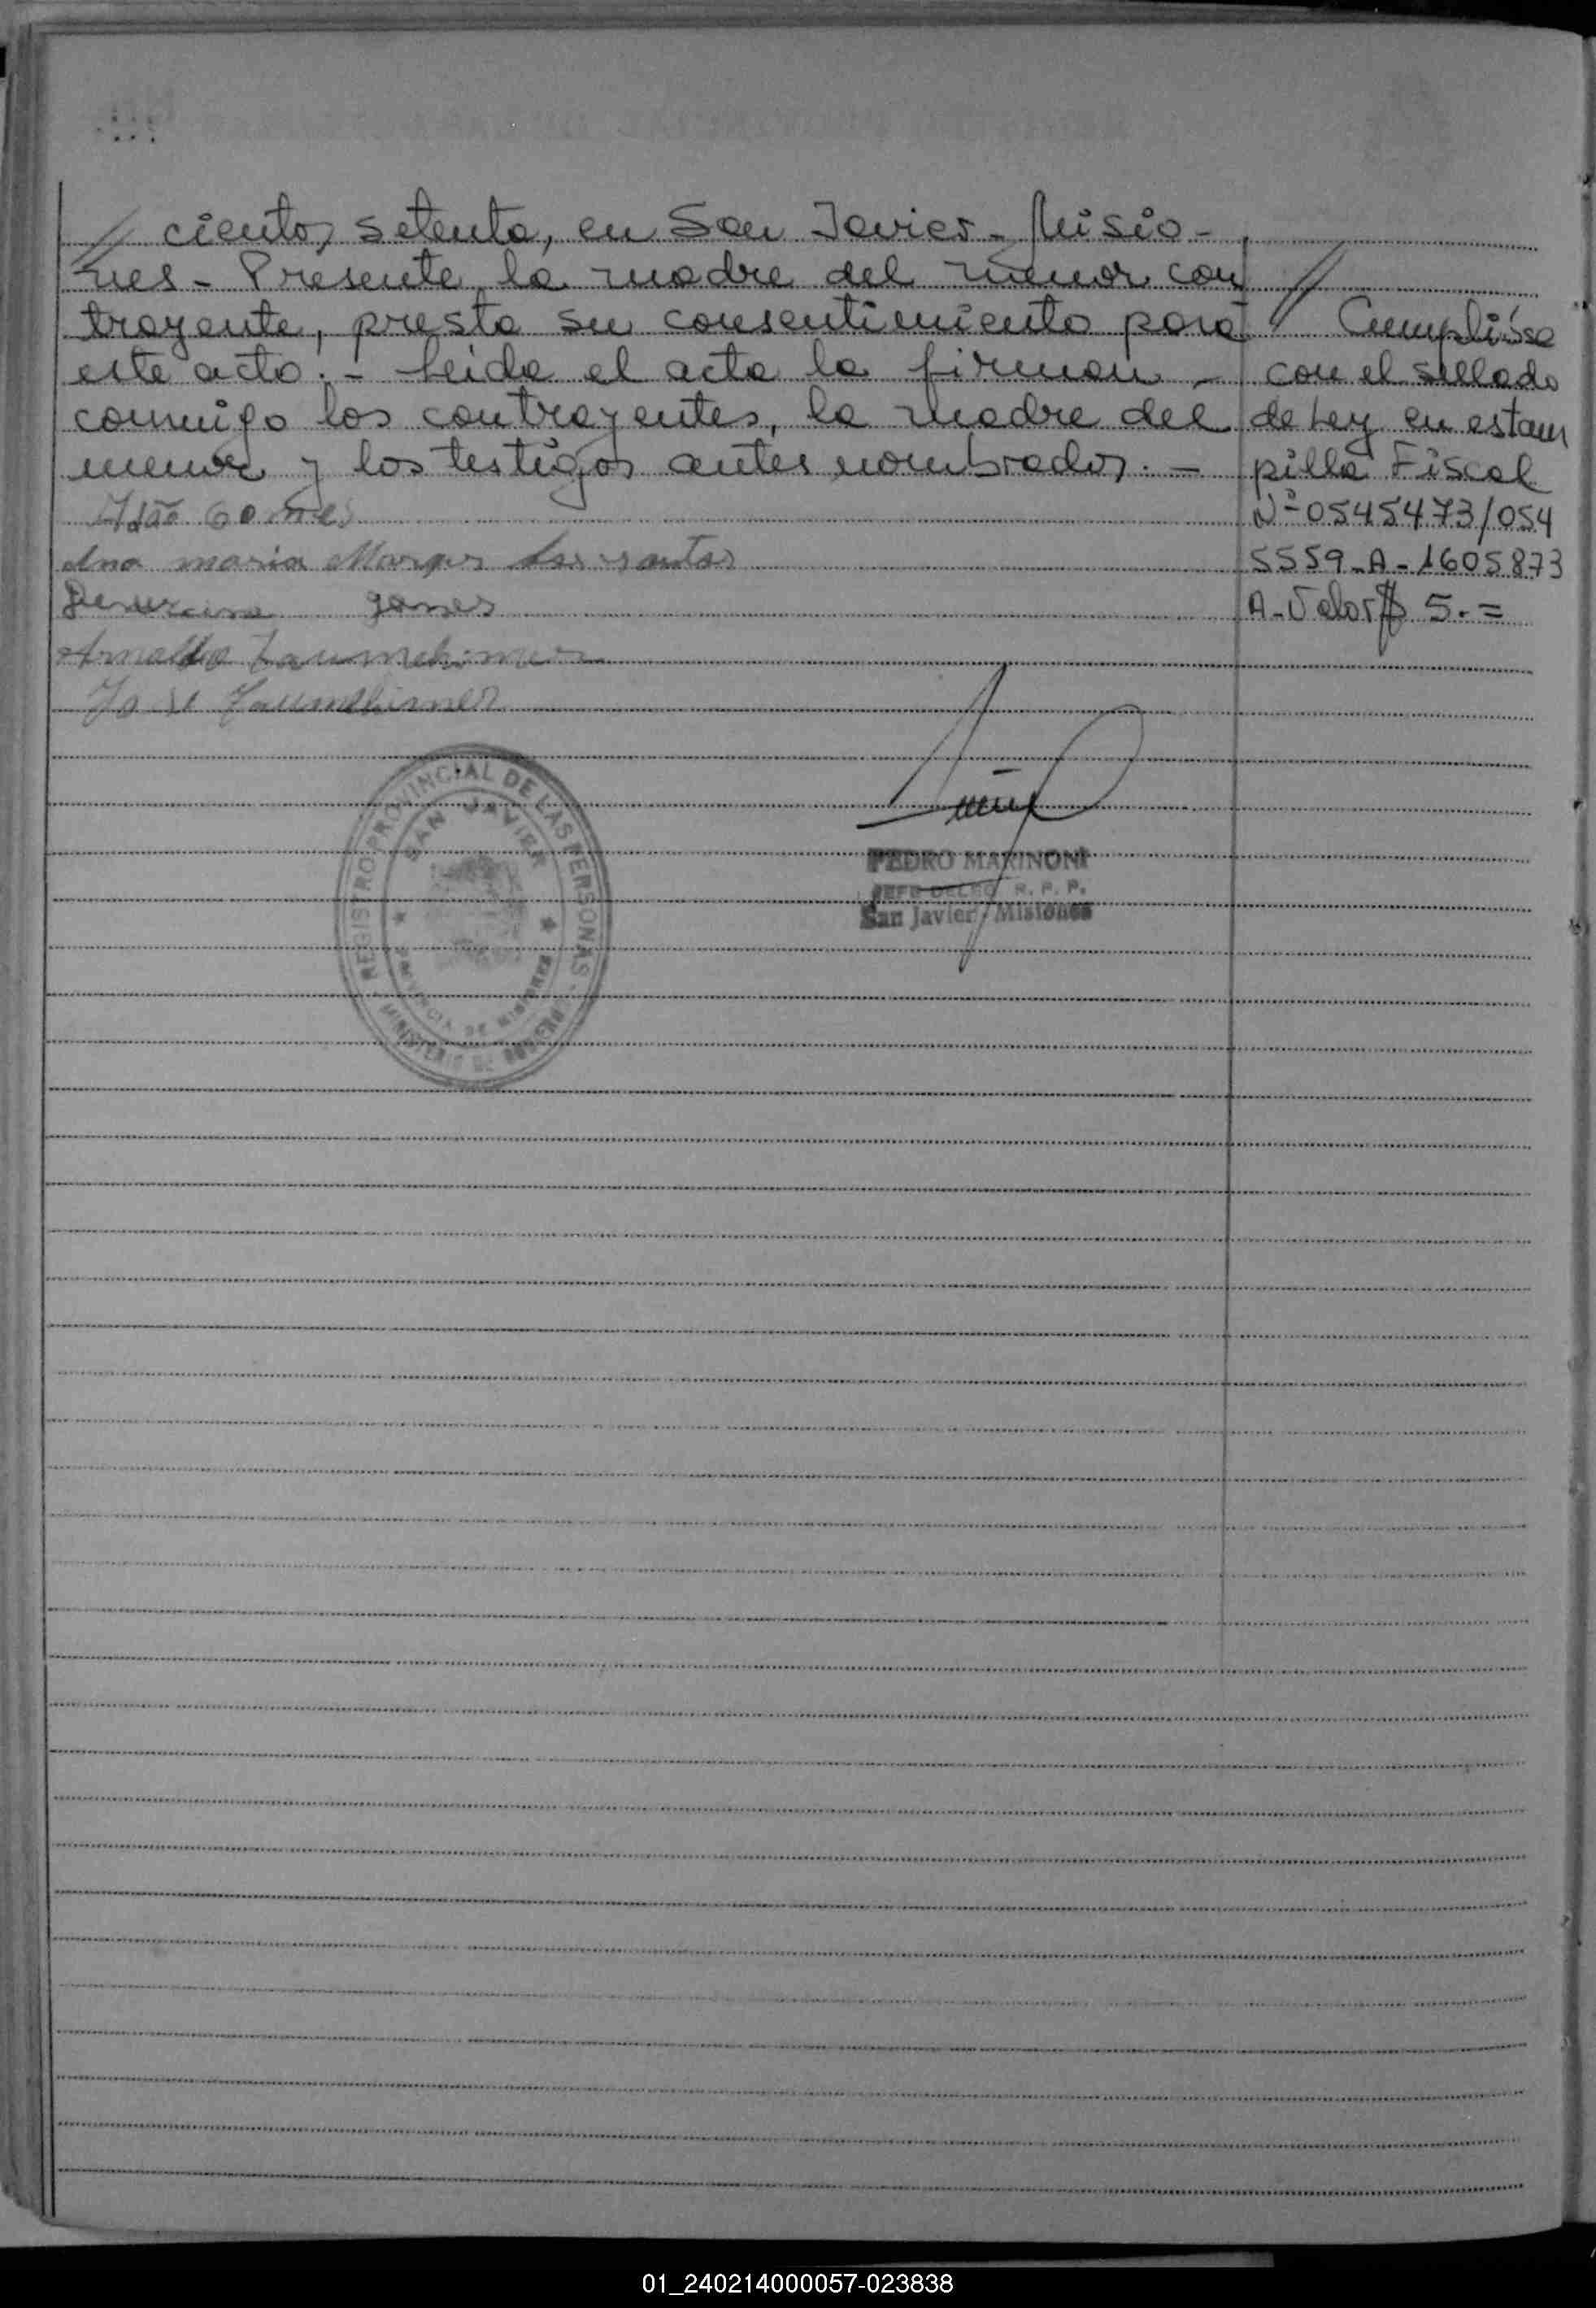 // cientos setenta, en San Javier - Misio-
nes - Presente la madre del menor con
trayente, presta su consentimiento para
este acto. - Leida el acta la firman -
conmigo los contrayentes, la madre del
menor y los testigos antes nombrados. -
Adão Gomes
Ana maria Marques dos santos
gomes
Arnoldo Taumchimer
José
// Cumplióse
con el sellado
de Ley en estam
pilla Fiscal
Nº 0545473/054
5559-A-1605873
A-Valor $ 5.=
REGISTRO PROVINCIAL DE LAS PERSONAS
SAN JAVIER
PROVINCIA DE MISIONES
MINISTERIO DE
PEDRO MARINONI
JEFE DELEG. R. P. P.
San Javier / Misiones
01_240214000057-023838